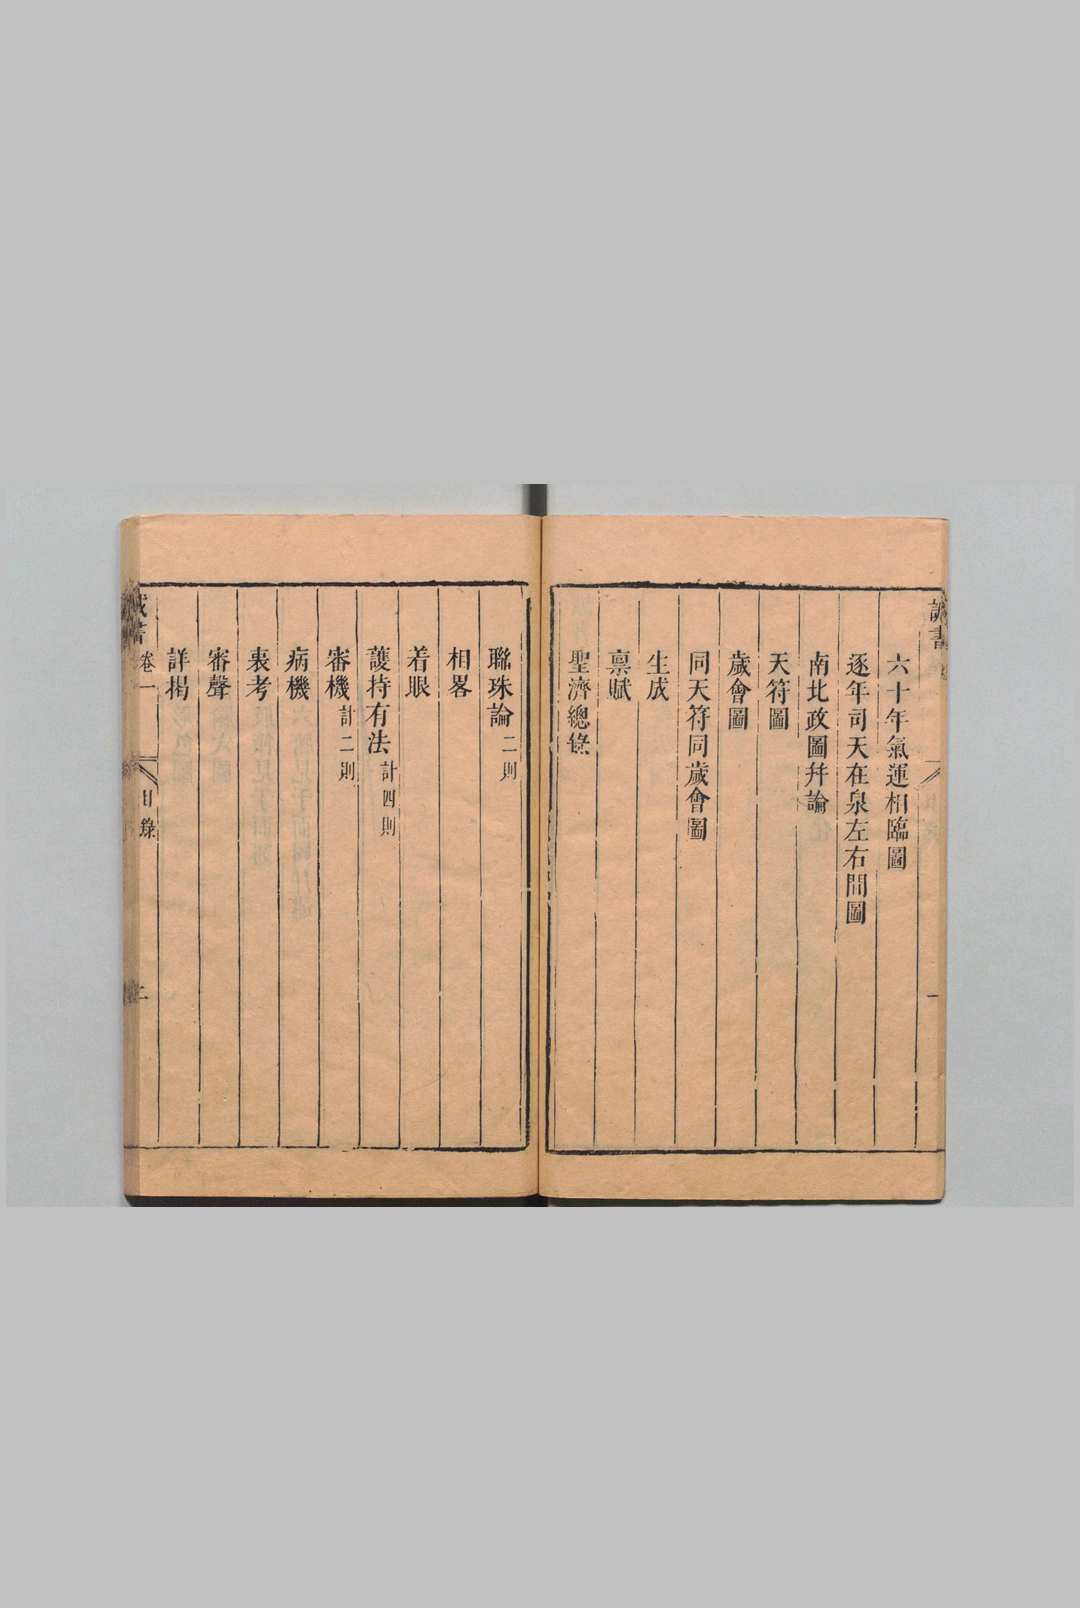 六十年氣運相臨圖
逐年司天在泉左右間圖
南北政圖幷論
天符圖
歲會圖
同天符同歲會圖
生成
禀賦
聖濟總錄
聮珠論二則
相畧
着眼
護持有法計四則
審機計二則
病機
表考
審聲
詳揭
誠書 卷一 目錄 二